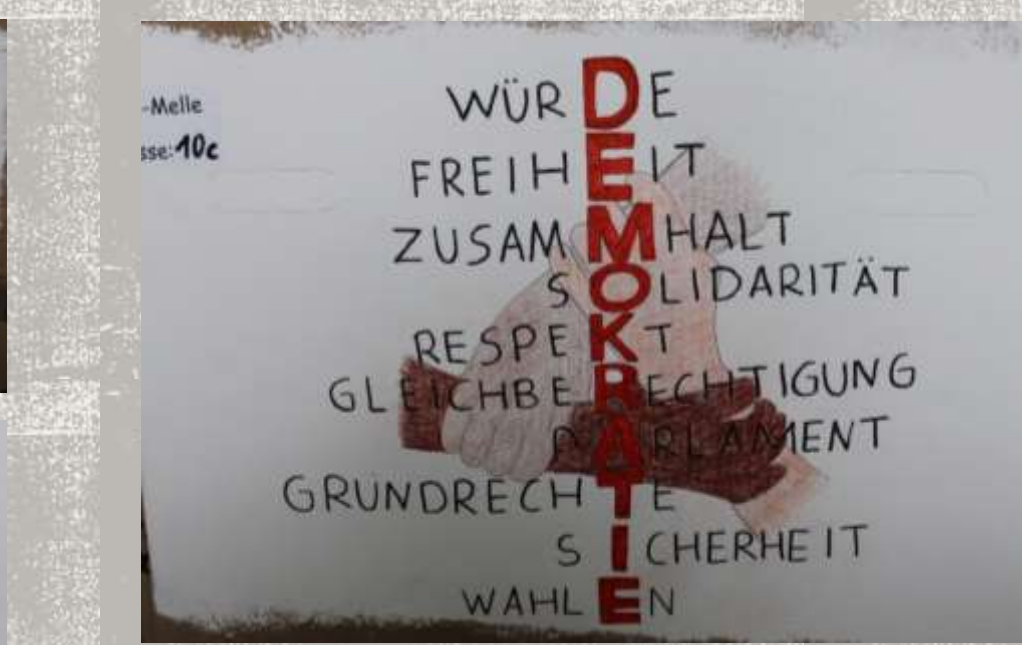 -Melle
sse: 10c
WÜRDE
FREIHEIT
ZUSAMMHALT
SOLIDARITÄT
RESPEKT
GLEICHBERECHTIGUNG
PARLAMENT
GRUNDRECHTE
SICHERHEIT
WAHLEN